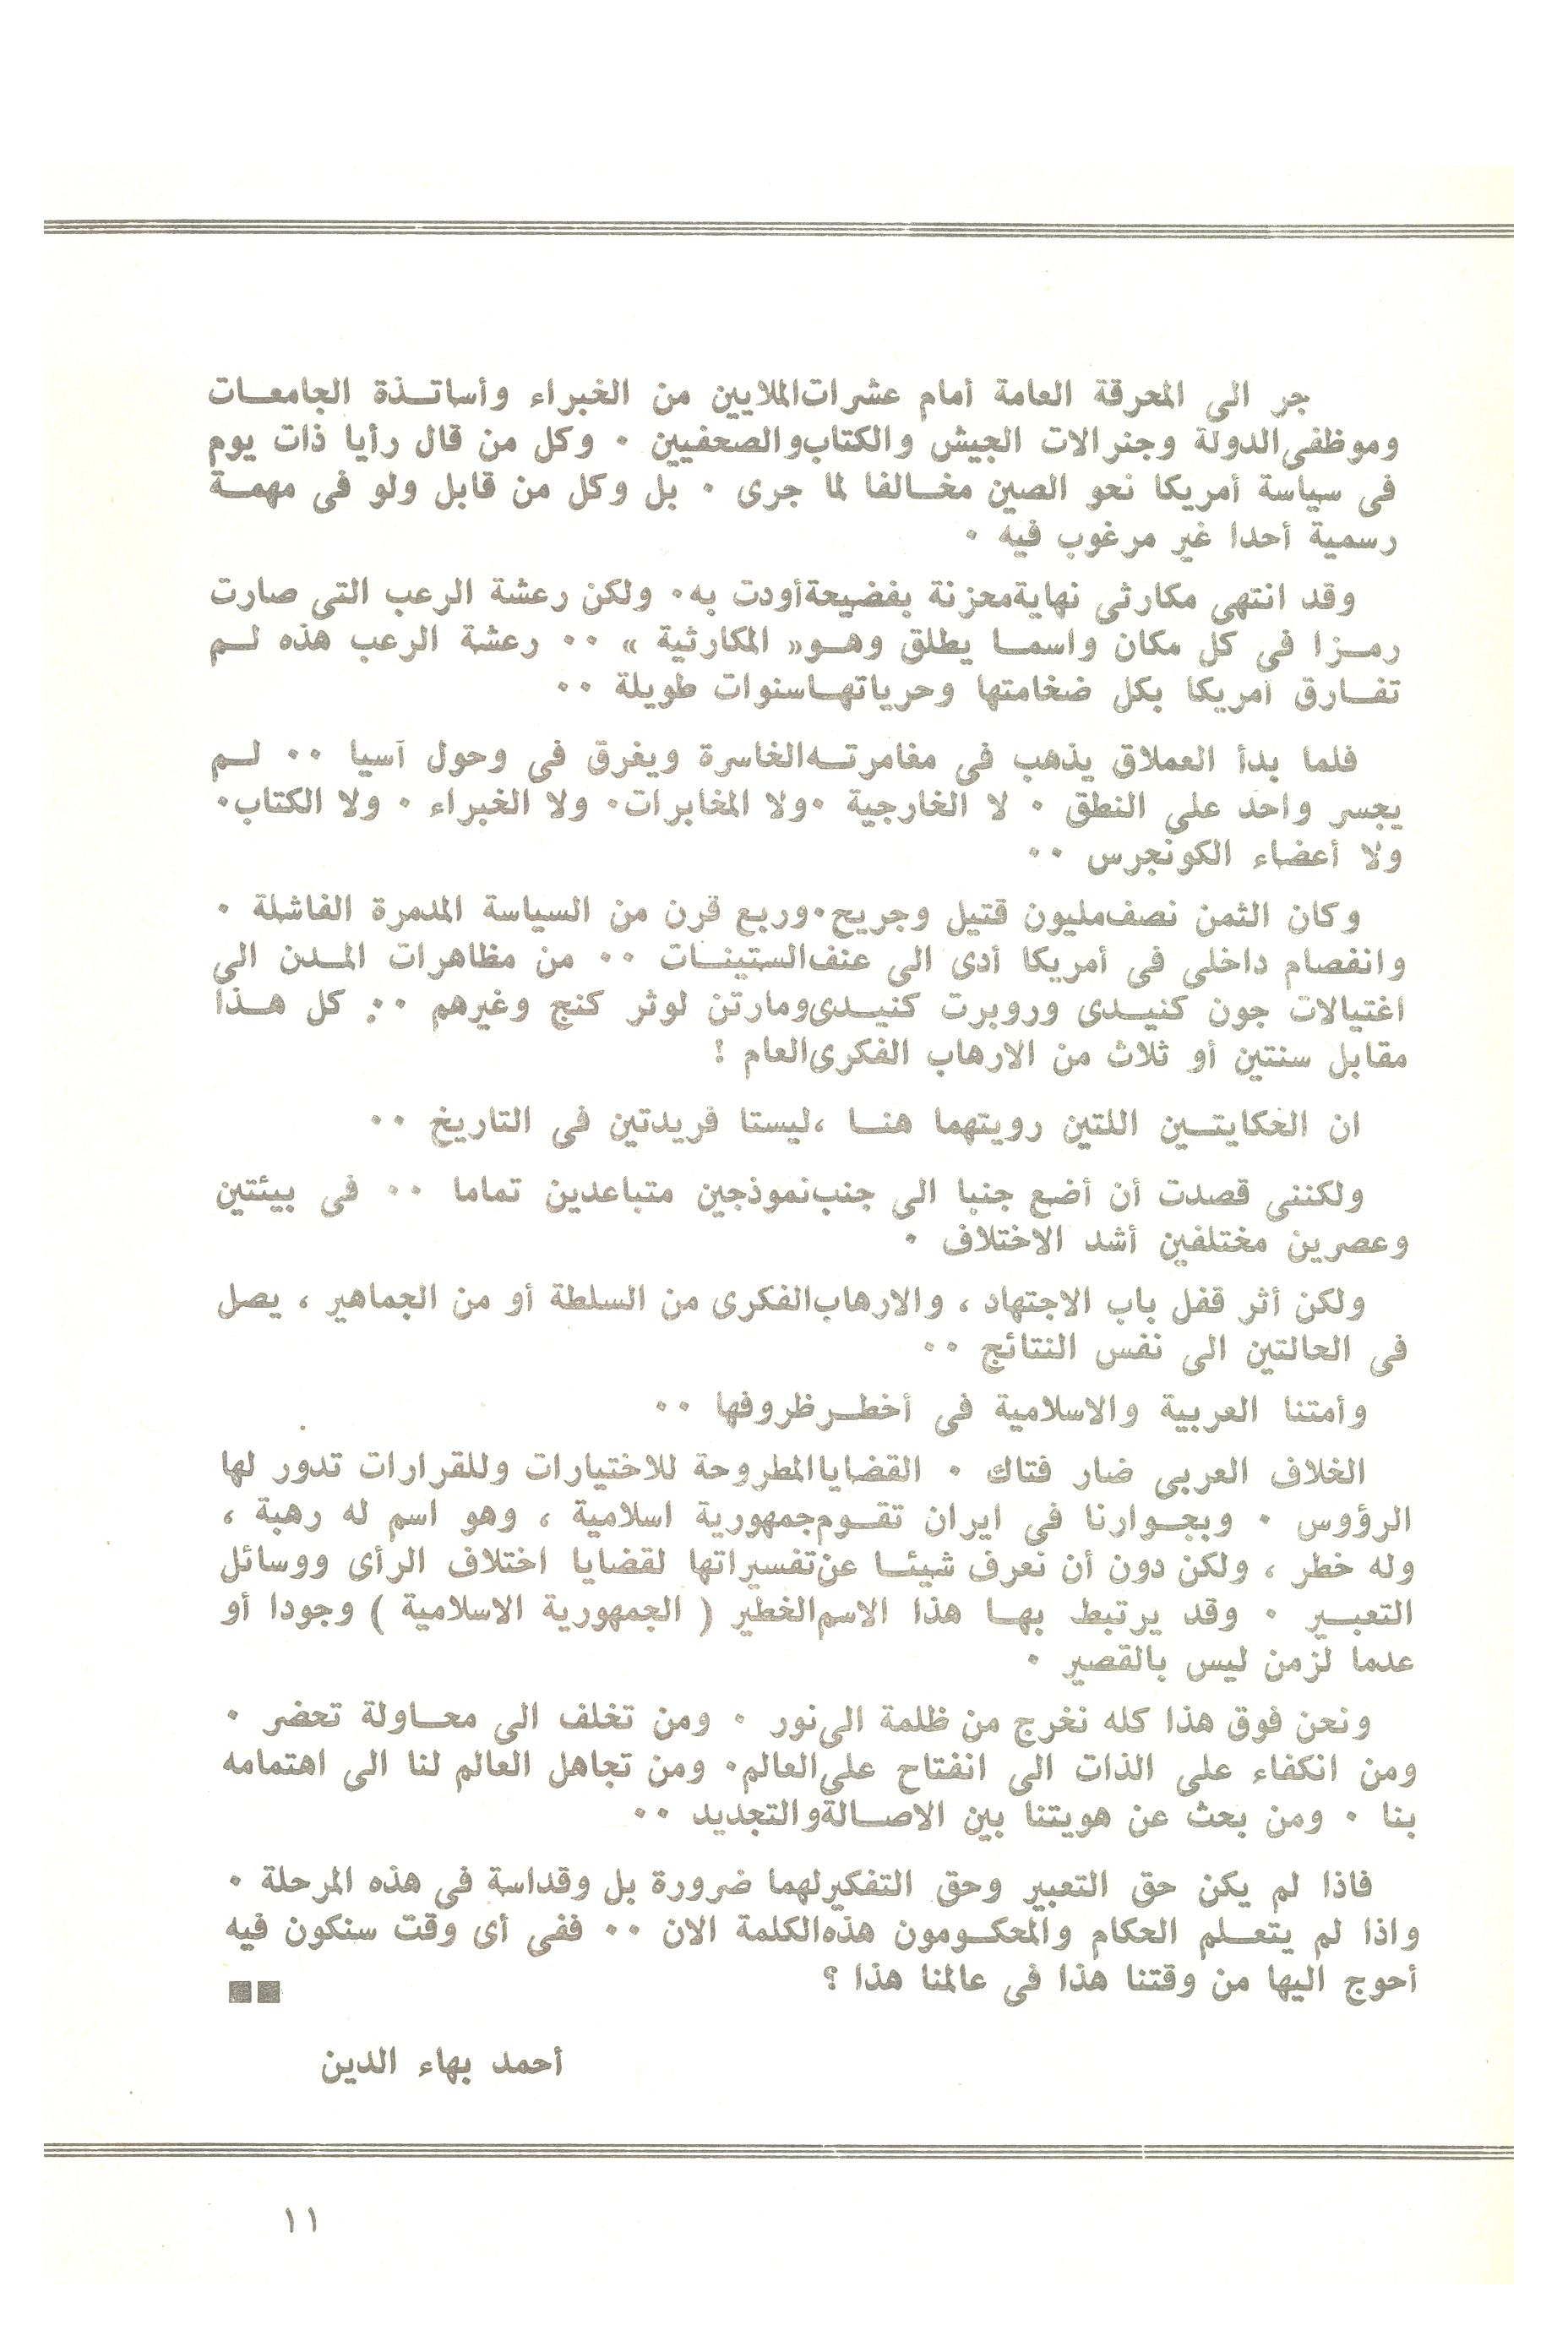 جر الى المحرقة العامة أمام عشرات الملايين من الخبراء وأساتـذة الجامعـات
وموظفى الدولة وجنرالات الجيش والكتاب والصحفيين . وكل من قال رأيا ذات يوم
فى سياسة أمريكا نحو الصين مخـالفا لما جرى . بل وكل من قابل ولو فى مهمـة
رسمية أحدا غير مرغوب فيه .
وقد انتهى مكارثى نهاية محزنة بفضيحة أودت به . ولكن رعشة الرعب التى صارت
رمـزا فى كل مكان واسمـا يطلق وهـو « المكارثية » .. رعشة الرعب هذه لـم
تفـارق أمريكا بكل ضخامتها وحرياتهـا سنوات طويلة ..
فلما بدأ العملاق يذهب فى مغامرتـه الخاسرة ويغرق فى وحول آسيا .. لـم
يجسر واحد على النطق . لا الخارجية . ولا المخابرات . ولا الخبراء . ولا الكتاب .
ولا أعضاء الكونجرس ..
وكان الثمن نصف مليون قتيل وجريح . وربع قرن من السياسة المدمرة الفاشلة .
وانفصام داخلى فى أمريكا أدى الى عنف الستينـات .. من مظاهرات المـدن الى
اغتيالات جون كنيـدى وروبرت كنيـدى ومارتن لوثر كنج وغيرهم .. كل هـذا
مقابل سنتين أو ثلاث من الارهاب الفكرى العام !
ان الحكايتـين اللتين رويتهما هنـا ، ليستا فريدتين فى التاريخ ..
ولكننى قصدت أن أضع جنبا الى جنب نموذجين متباعدين تماما .. فى بيئتين
وعصرين مختلفين أشد الاختلاف .
ولكن أثر قفل باب الاجتهاد ، والارهاب الفكرى من السلطة أو من الجماهير ، يصل
فى الحالتين الى نفس النتائج ..
وأمتنا العربية والاسلامية فى أخطـر ظروفها ..
الخلاف العربى ضار فتاك . القضايا المطروحة للاختيارات وللقرارات تدور لها
الرؤوس . وبجـوارنا فى ايران تقـوم جمهورية اسلامية ، وهو اسم له رهبة ،
وله خطر ، ولكن دون أن نعرف شيئـا عن تفسيراتها لقضايا اختلاف الرأى ووسائل
التعبـير . وقد يرتبط بهـا هذا الاسم الخطير ( الجمهورية الاسلامية ) وجودا أو
عدما لزمن ليس بالقصير .
ونحن فوق هذا كله نخرج من ظلمة الى نور . ومن تخلف الى محـاولة تحضر .
ومن انكفاء على الذات الى انفتاح على العالم . ومن تجاهل العالم لنا الى اهتمامه
بنا . ومن بحث عن هويتنا بين الاصـالة والتجديد ..
فاذا لم يكن حق التعبير وحق التفكير لهما ضرورة بل وقداسة فى هذه المرحلة .
واذا لم يتعـلم الحكام والمحكـومون هذه الكلمة الان .. ففى أى وقت سنكون فيه
أحوج اليها من وقتنا هذا فى عالمنا هذا ؟
أحمد بهاء الدين
١١